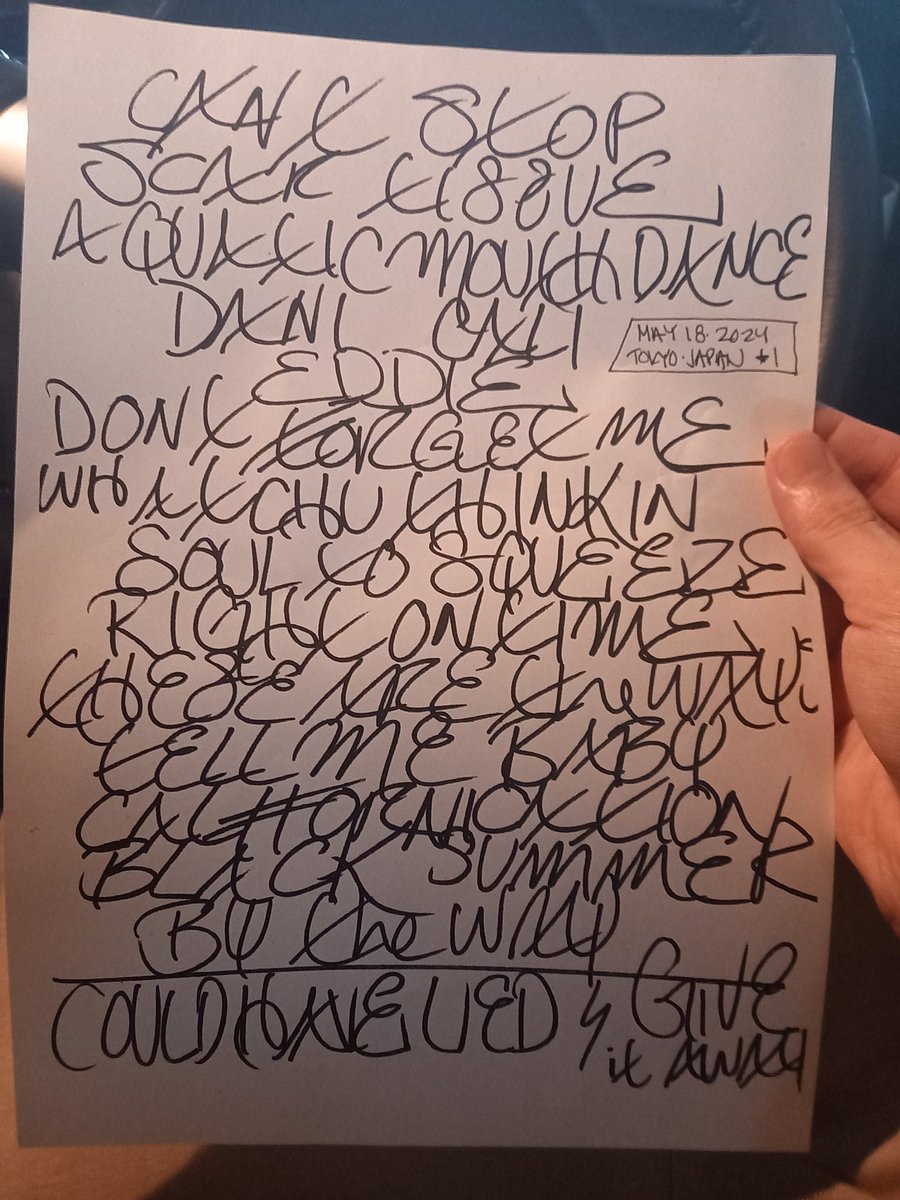 CAN'T STOP
SCAR TISSUE
AQUATIC MOUTH DANCE
DANI CALI
MAY 18·2024
TOKYO·JAPAN #1
EDDIE
DON'T FORGET ME
WHATCHU THINKIN
SOUL TO SQUEEZE
RIGHT ON TIME
THESE ARE the WAYS
TELL ME BABY
CALIFORNICATION
BLACK SUMMER
BY the WAY
COULD HAVE LIED & GIVE
it AWAY